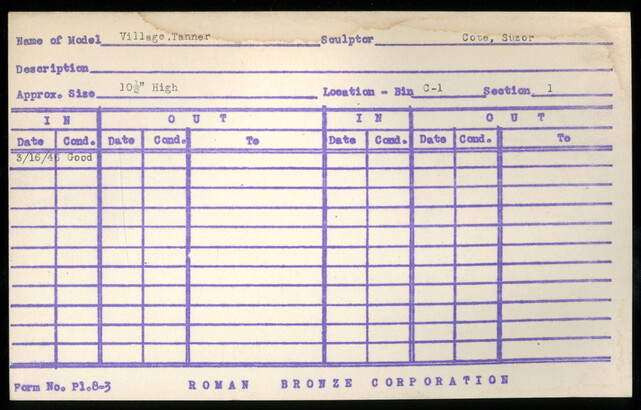 Name of Model Village, Tanner Sculptor Cote, Suzor
Description
Approx. Size 10½" High Location - Bin C-1 Section 1
IN OUT IN OUT
Date Cond. Date Cond. To Date Cond. Date Cond. To
3/16/46 Good
Form No. Pl.8-3 ROMAN BRONZE CORPORATION